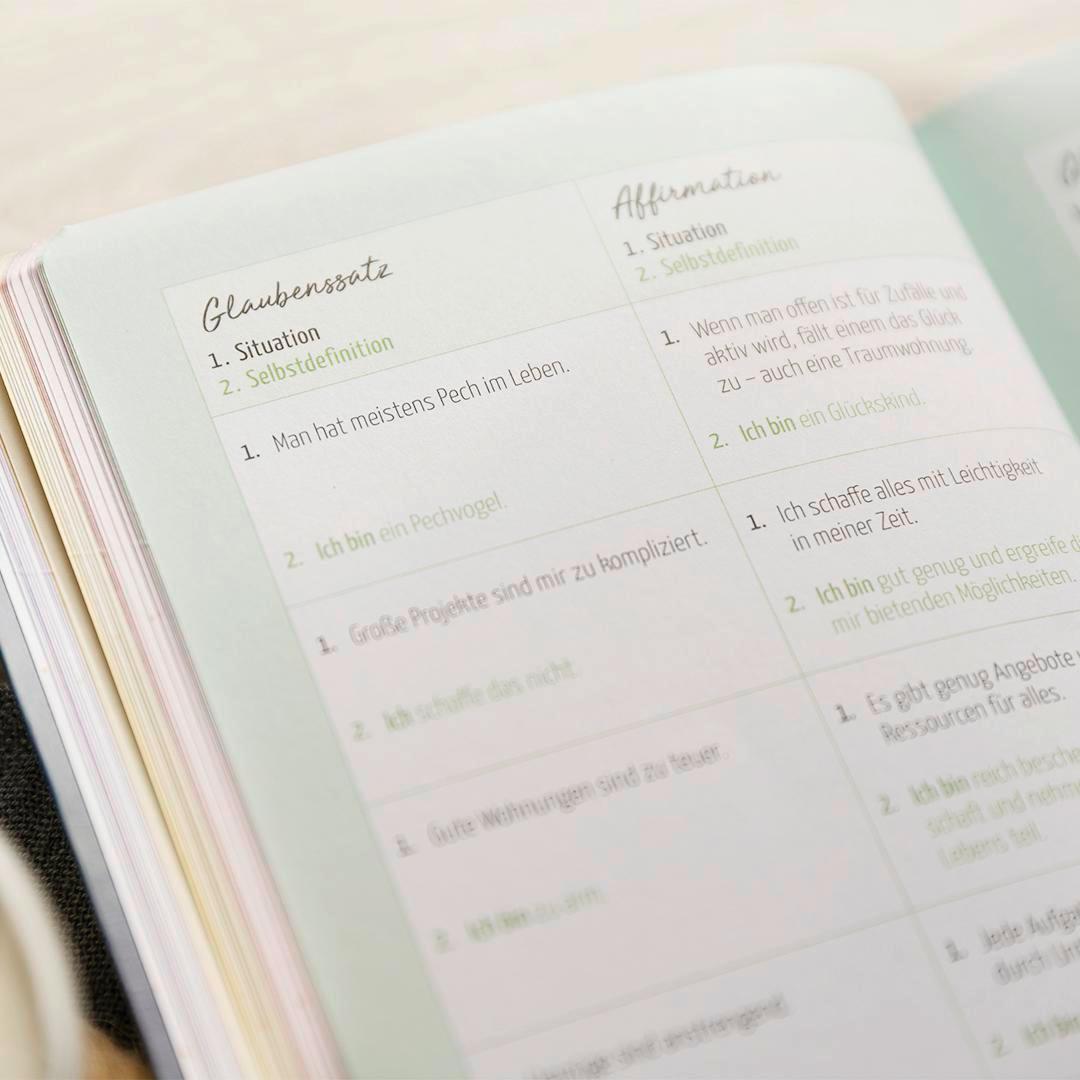 Glaubenssatz
1. Situation
2. Selbstdefinition
Affirmation
1. Situation
2. Selbstdefinition
1. Man hat meistens Pech im Leben.
2. Ich bin ein Pechvogel.
1. Wenn man offen ist für Zufälle und
aktiv wird, fällt einem das Glück
zu – auch eine Traumwohnung.
2. Ich bin ein Glückskind.
1. Große Projekte sind mir zu kompliziert.
2. Ich schaffe das nicht.
1. Ich schaffe alles mit Leichtigkeit
in meiner Zeit.
2. Ich bin gut genug und ergreife
mir bietenden Möglichkeiten.
1. Gute Wohnungen sind zu teuer.
2. Ich bin zu arm.
1. Es gibt genug Angebote
Ressourcen für alles.
2. Ich bin reich
schaft und
Lebens teil.
sind anstrengend
1. Jede
durch
2. Ich bin